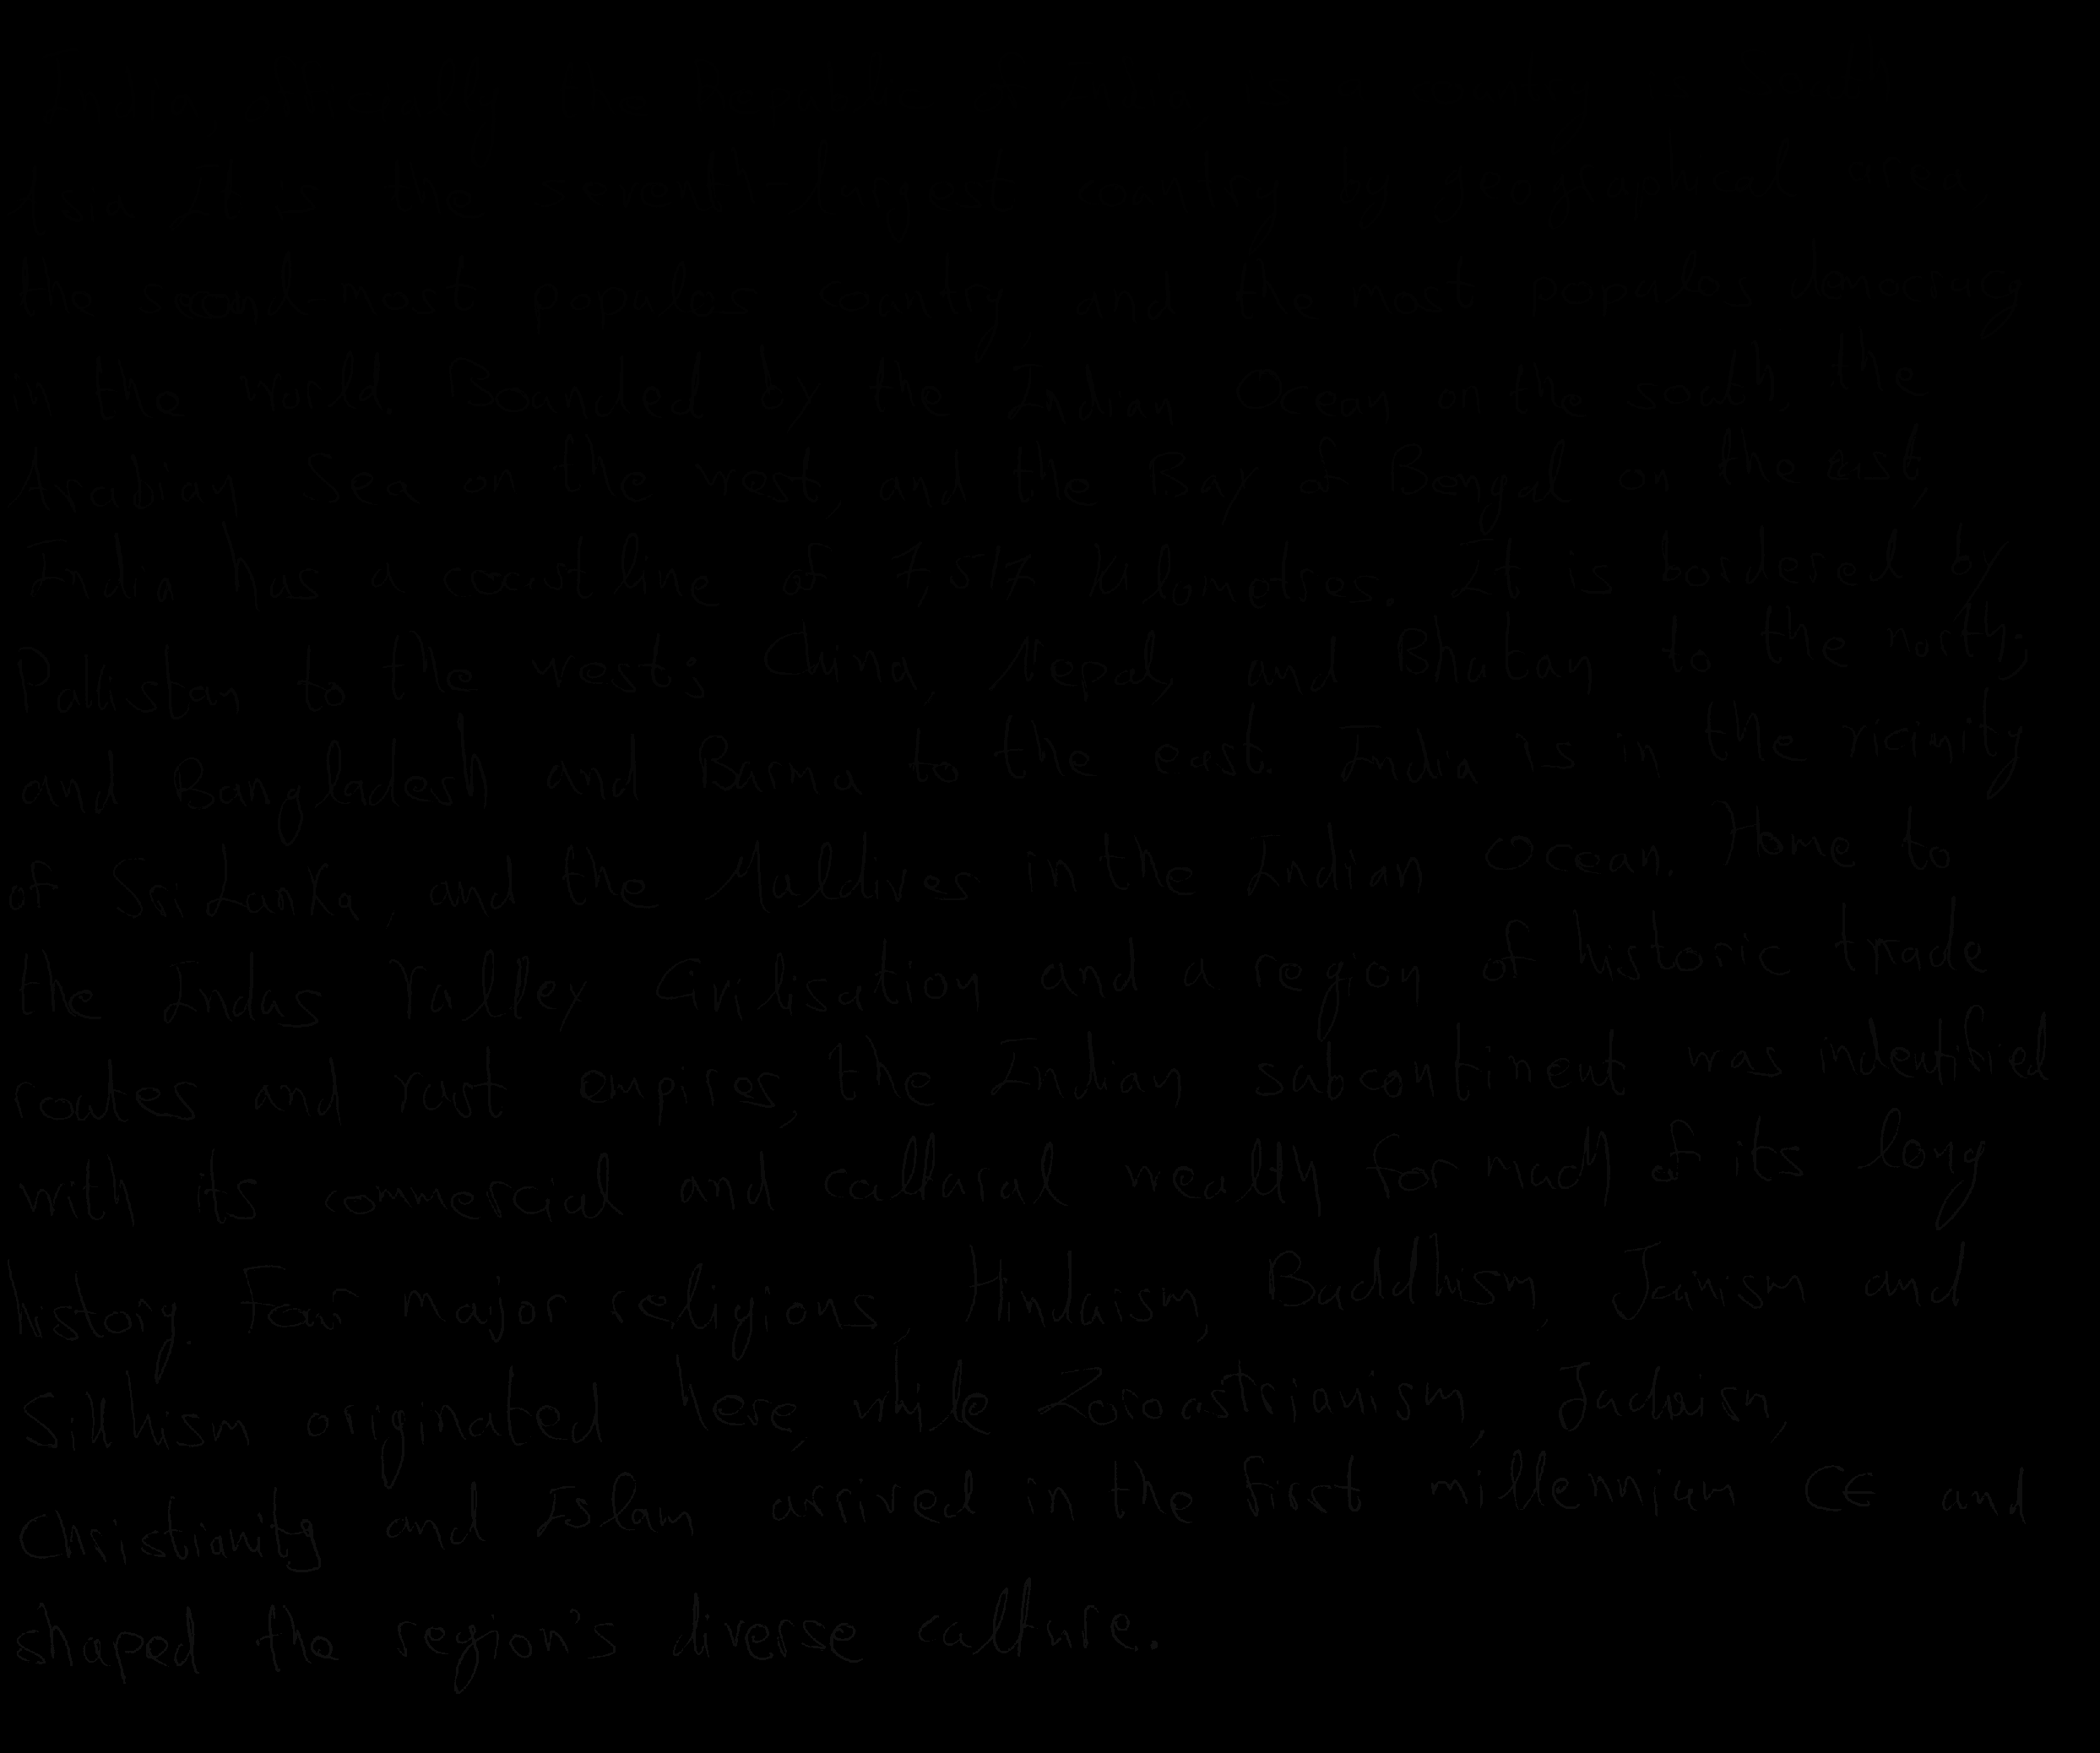 Asia. It is the seventh-largest country by geographical area,
the second-most populos country, and the most populos democracy
in the world. Bounded by the Indian Ocean on the south, the
Arabian Sea on the west, and the Bay of Bengal on the east,
India has a coastline of 7,517 kilometres. It is bordered by
Pakistan to the west; China, Nepal, and Bhutan to the north;
and Bangladesh and Burma to the east. India is in the vicinity
of Sri Lanka, and the Maldives in the Indian Ocean. Home to
the Indus Valley Civilisation and a region of historic trade
routes and vast empires, the Indian subcontinent was indentified
with its commercial and cultural wealth for much of its long
history. Four major religions, Hinduism, Buddhism, Jainism and
Sikhism originated here, while Zoroastrianism, Judaism,
Christianity and Islam arrived in the first millennium CE and
shaped the region's diverse culture.